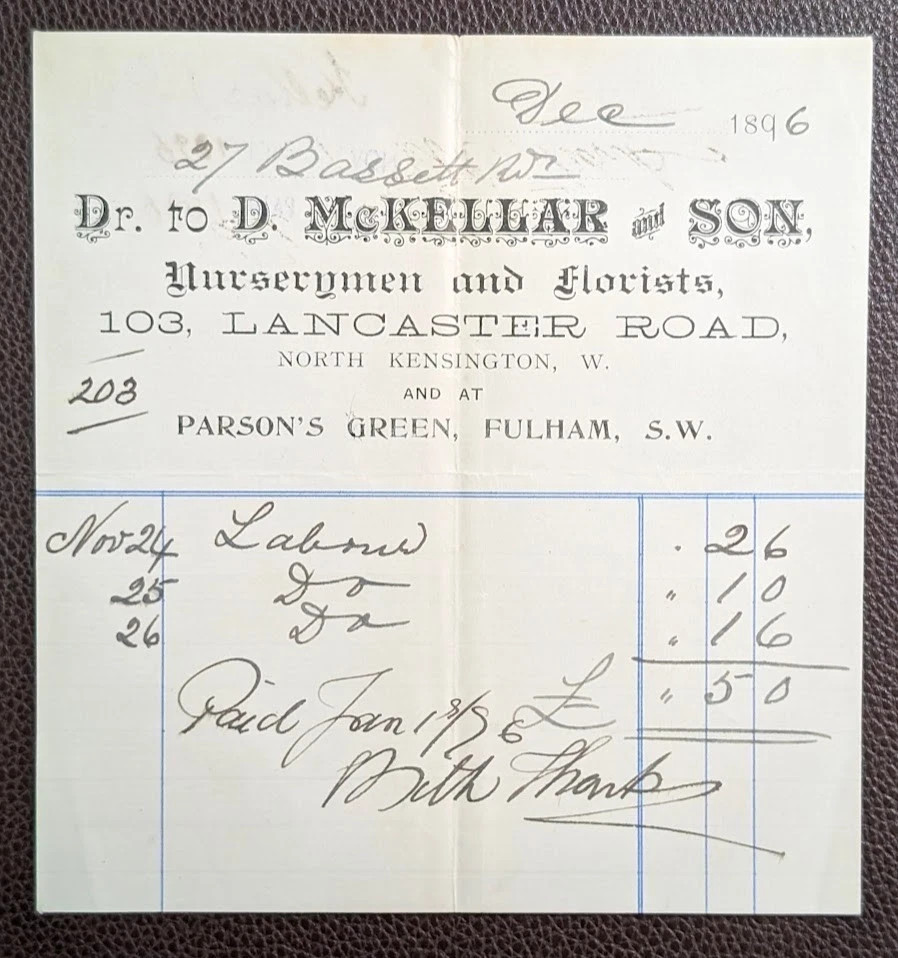 Dec 1896
27 Bassett Rd
Dr. to D. McKELLAR and SON,
Nurserymen and Florists,
103, LANCASTER ROAD,
NORTH KENSINGTON, W.
AND AT
203
PARSON'S GREEN, FULHAM, S.W.
Nov 24 Labour . 2 6
25 Do " 1 0
26 Do " 1 6
£ " 5 0
Paid Jan
With Thanks